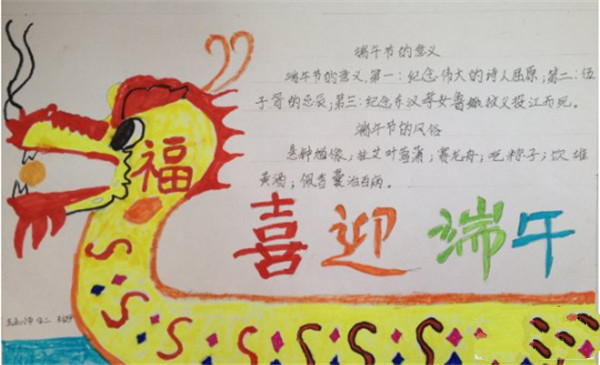 端午节的意义
端午节的意义,第一:纪念伟大的诗人屈原;第二:伍
子胥的忌辰;第三:纪念东汉孝女曹娥救父投江而死。
端午节的风俗
悬钟馗像;挂艾叶菖蒲;赛龙舟;吃粽子;饮雄
黄酒;佩香囊治百病。
福
喜迎端午